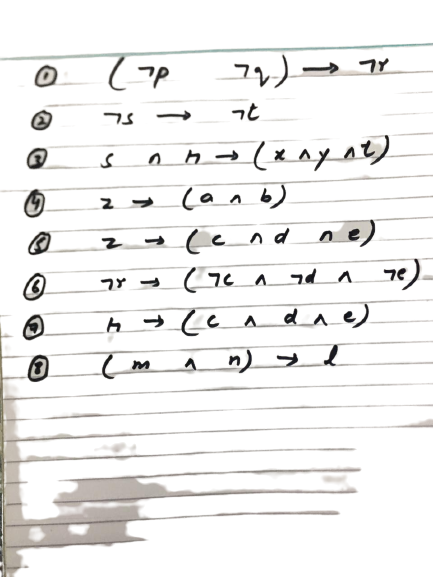 ① (¬p ¬q) → ¬r
② ¬s → ¬t
③ s ∧ h → (x ∧ y ∧ t)
④ z → (a ∧ b)
⑤ z → (c ∧ d ∧ e)
⑥ ¬r → (¬c ∧ ¬d ∧ ¬e)
⑦ h → (c ∧ d ∧ e)
⑧ (m ∧ n) → l